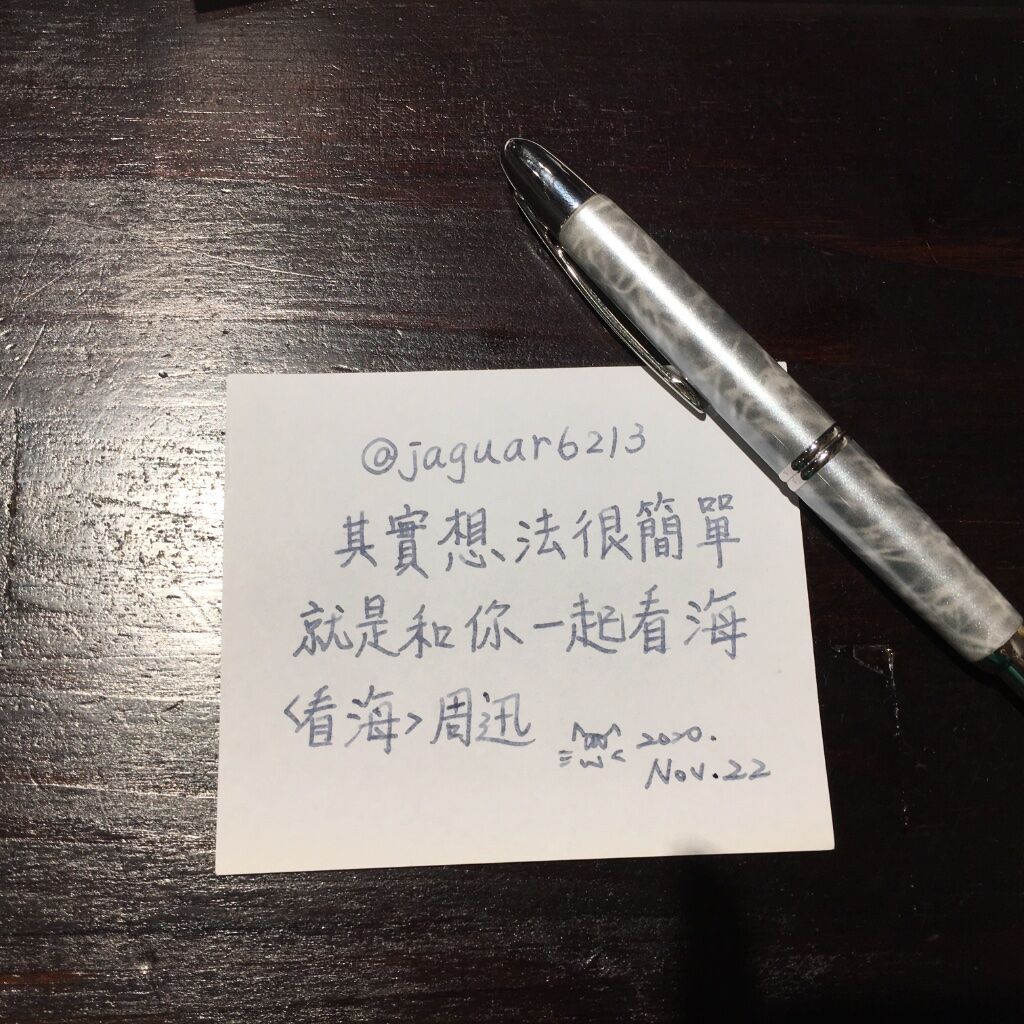 @jaguar6213
其實想法很簡單
就是和你一起看海
<看海>周迅
2020.
Nov.22